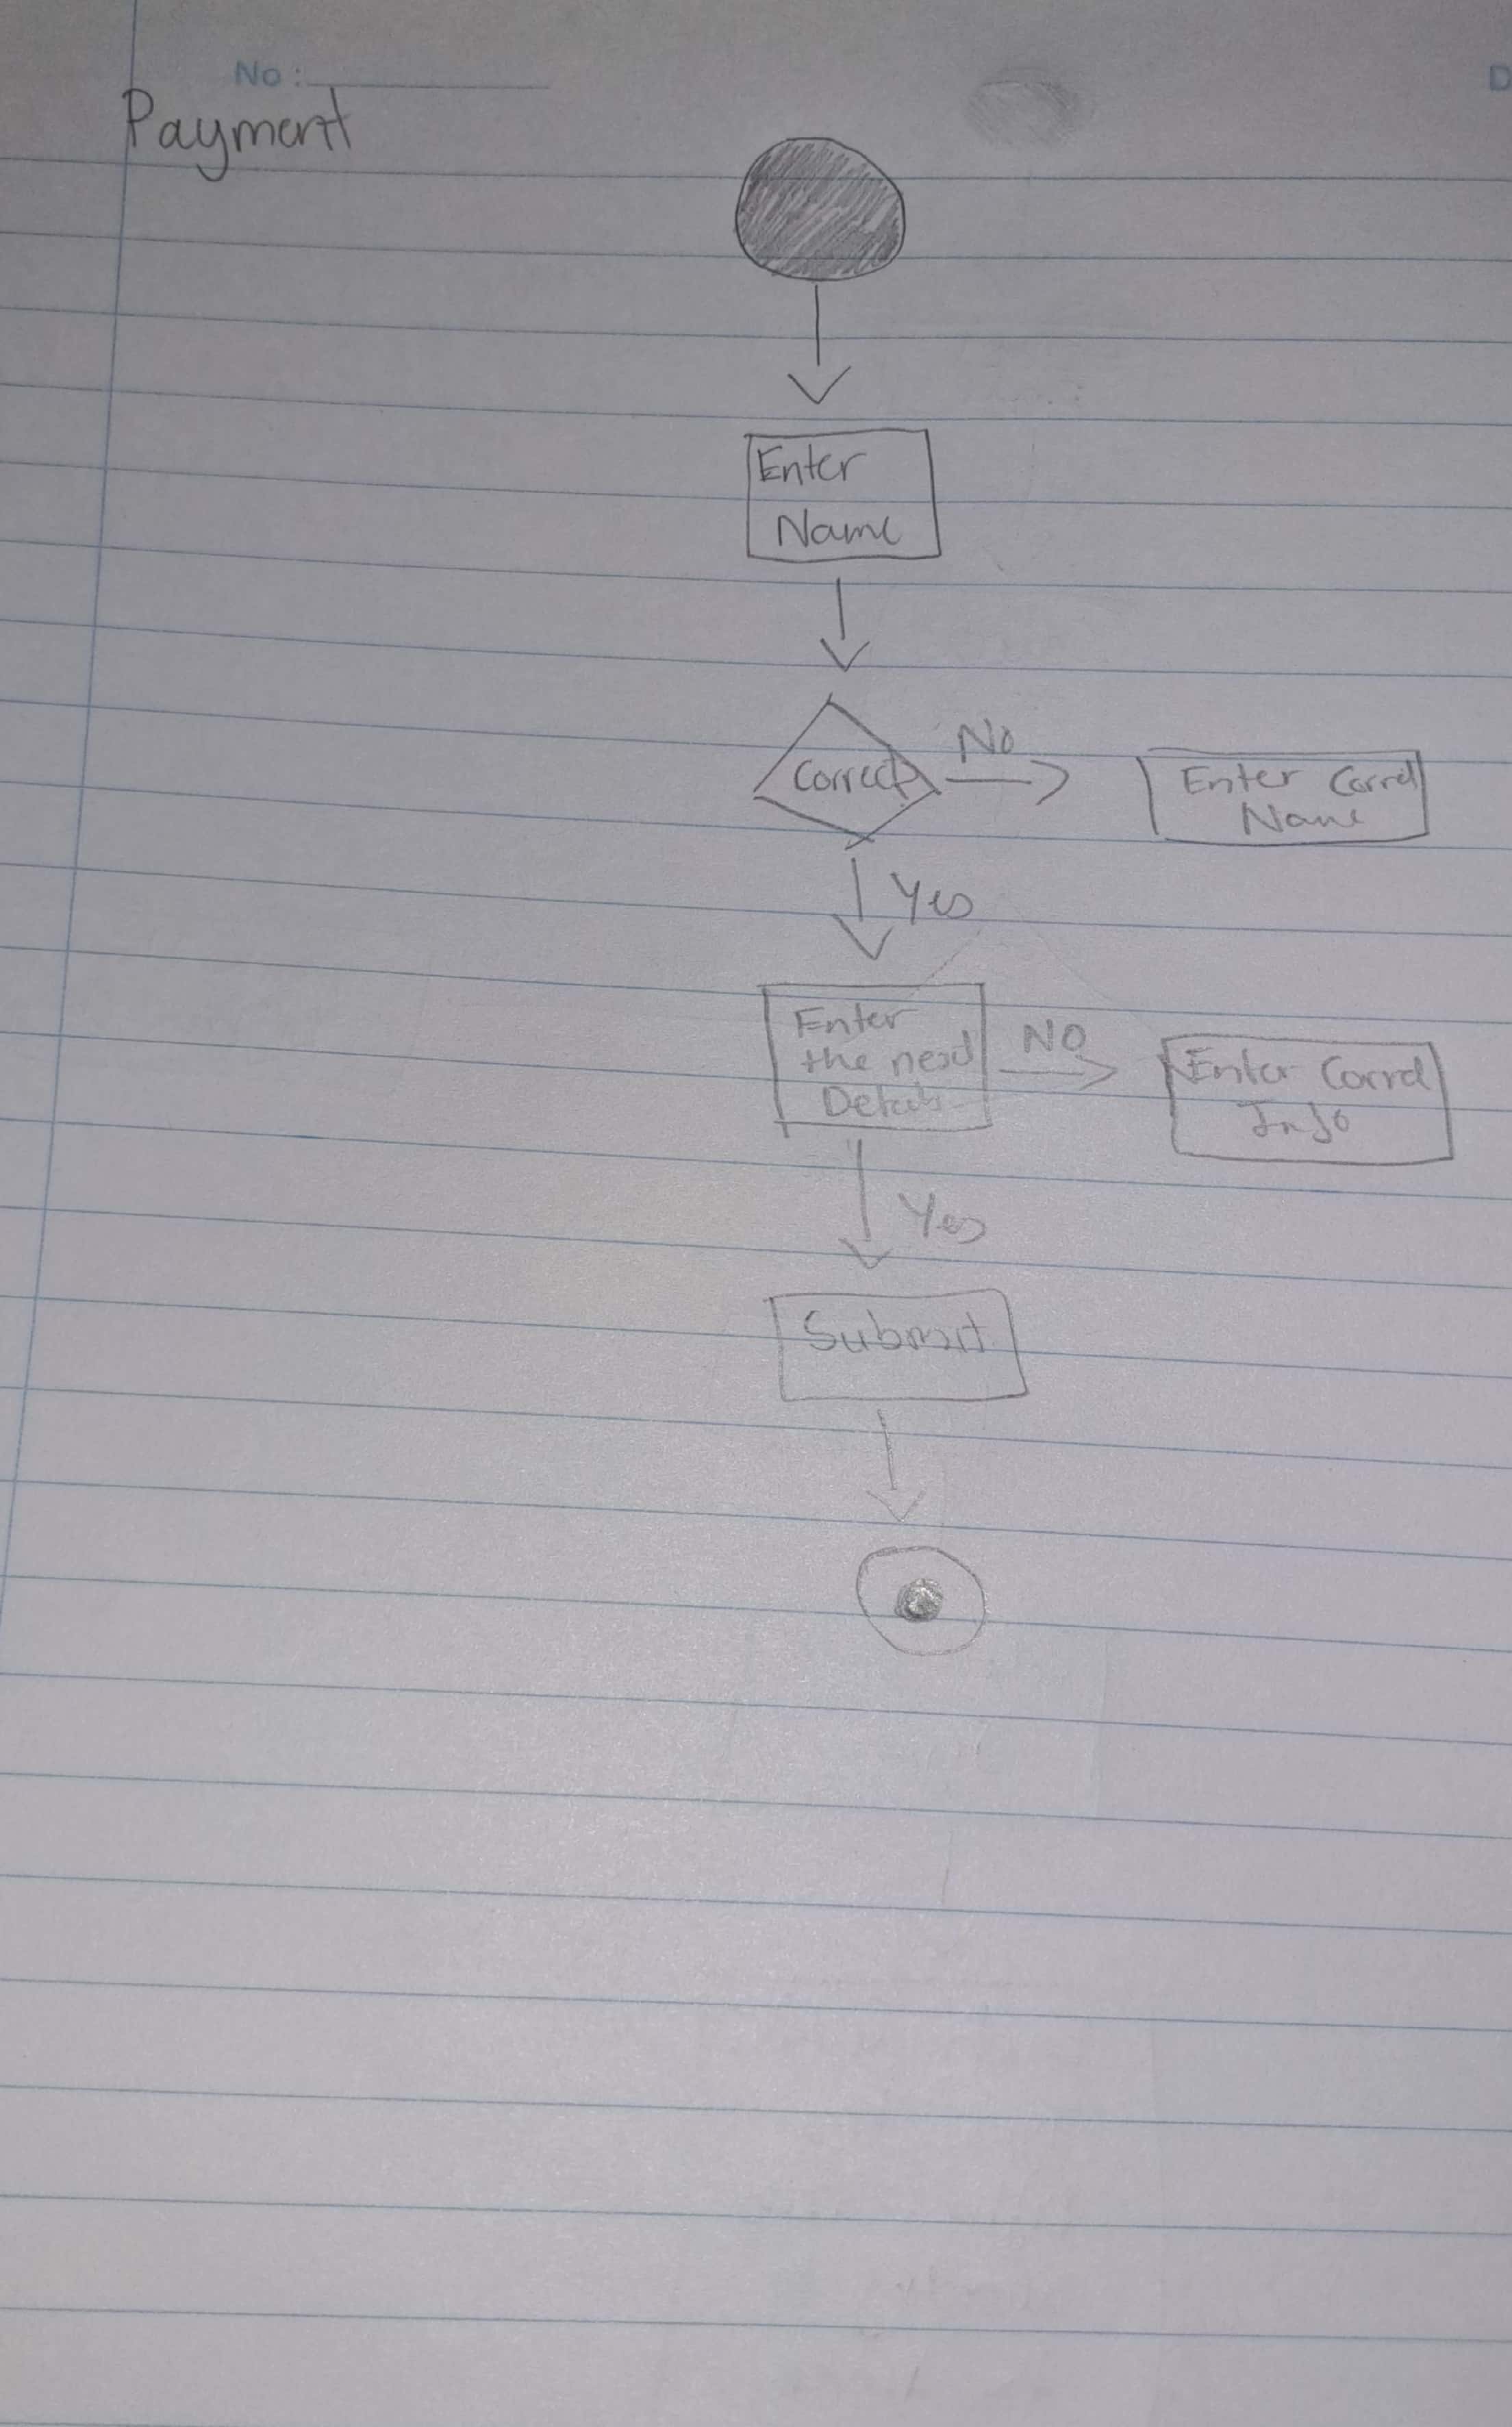 No:
D
Payment
Enter
Name
Correct
No
Enter Correct
Name
Yes
Enter
the next
Details
NO
Enter Correct
Info
Yes
Submit